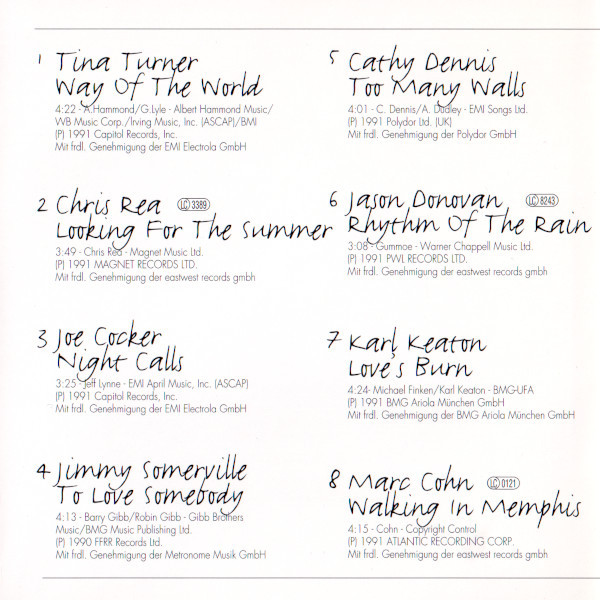 1 Tina Turner
Way Of The World
4:22 - A.Hammond/G.Lyle - Albert Hammond Music/
WB Music Corp./Irving Music, Inc. (ASCAP)/BMI
(P) 1991 Capitol Records, Inc.
Mit frdl. Genehmigung der EMI Electrola GmbH
2 Chris Rea LC 3389
Looking For The Summer
3:49 - Chris Rea - Magnet Music Ltd.
(P) 1991 MAGNET RECORDS LTD.
Mit frdl. Genehmigung der eastwest records gmbh
3 Joe Cocker
Night Calls
3:25 - Jeff Lynne - EMI April Music, Inc. (ASCAP)
(P) 1991 Capitol Records, Inc.
Mit frdl. Genehmigung der EMI Electrola GmbH
4 Jimmy Somerville
To Love Somebody
4:13 - Barry Gibb/Robin Gibb - Gibb Brothers
Music/BMG Music Publishing Ltd.
(P) 1990 FFRR Records Ltd.
Mit frdl. Genehmigung der Metronome Musik GmbH
5 Cathy Dennis
Too Many Walls
4:01 - C. Dennis/A. Dudley - EMI Songs Ltd.
(P) 1991 Polydor Ltd. (UK)
Mit frdl. Genehmigung der Polydor GmbH
6 Jason Donovan LC 8243
Rhythm Of The Rain
3:08 - Gummoe - Warner Chappell Music Ltd.
(P) 1991 PWL RECORDS LTD.
Mit frdl. Genehmigung der eastwest records gmbh
7 Karl Keaton
Love's Burn
4:24- Michael Finken/Karl Keaton - BMG-UFA
(P) 1991 BMG Ariola München GmbH
Mit frdl. Genehmigung der BMG Ariola München GmbH
8 Marc Cohn LC 0121
Walking In Memphis
4:15 - Cohn - Copyright Control
(P) 1991 ATLANTIC RECORDING CORP.
Mit frdl. Genehmigung der eastwest records gmbh